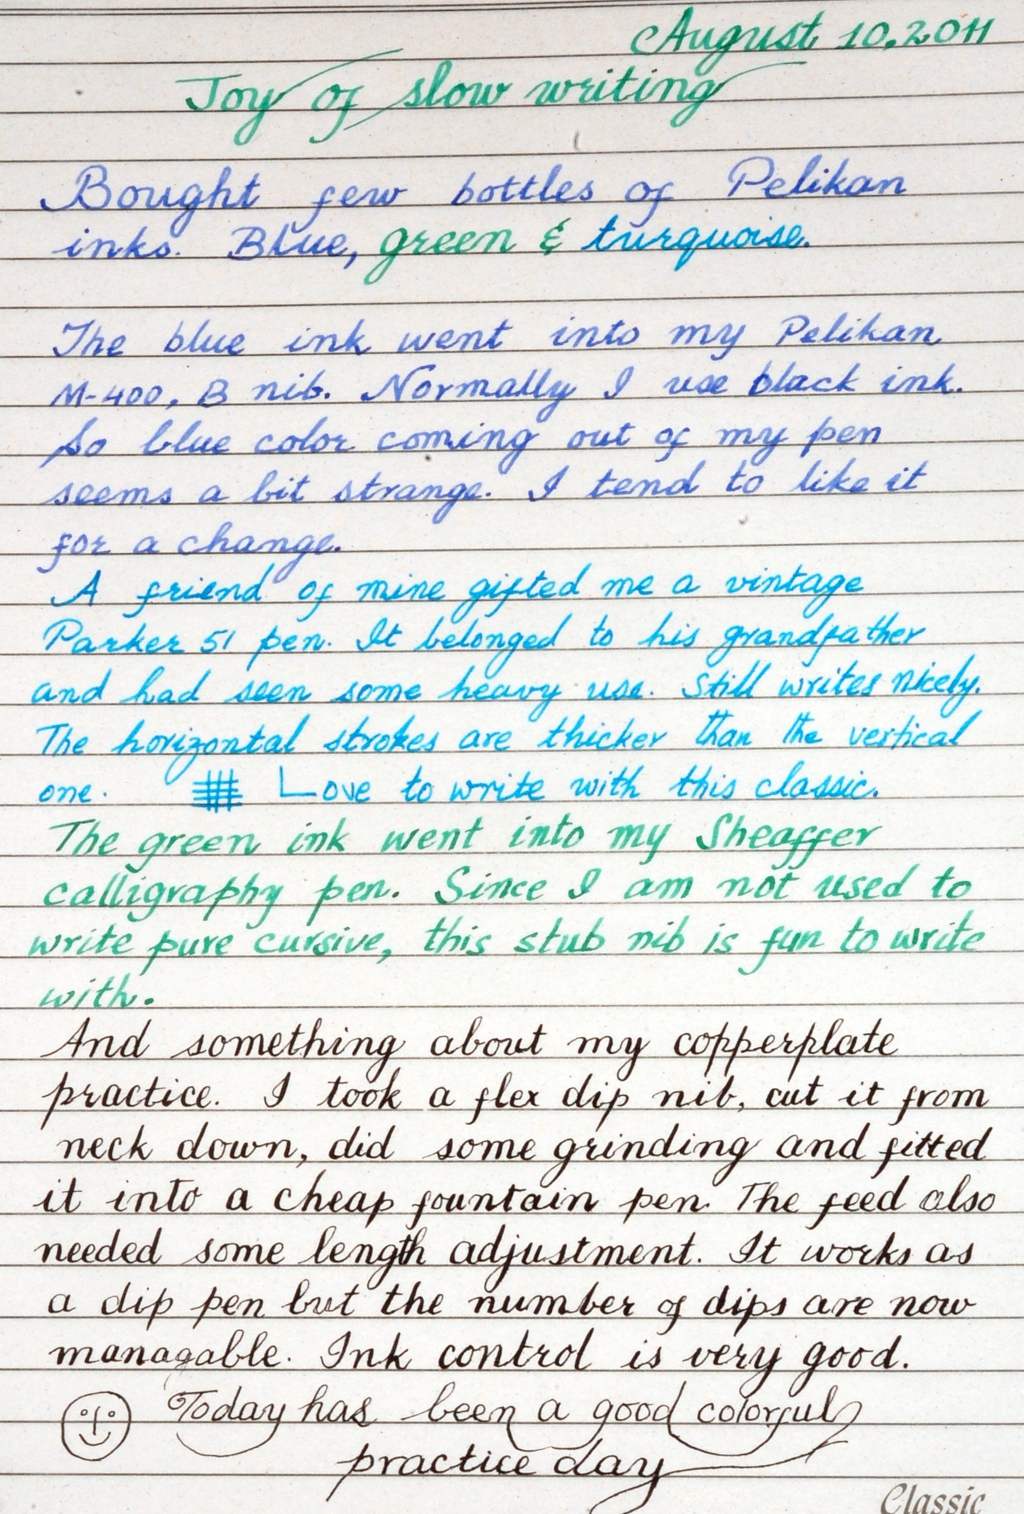 August 10, 2011
Joy of slow writing
Bought few bottles of Pelikan
inks. Blue, green & turquoise.
The blue ink went into my Pelikan
M-400, B nib. Normally I use black ink.
So blue color coming out of my pen
seems a bit strange. I tend to like it
for a change.
A friend of mine gifted me a vintage
Parker 51 pen. It belonged to his grandfather
and had seen some heavy use. Still writes nicely.
The horizontal strokes are thicker than the vertical
one. Love to write with this classic.
The green ink went into my Sheaffer
calligraphy pen. Since I am not used to
write pure cursive, this stub nib is fun to write
with.
And something about my copperplate
practice. I took a flex dip nib, cut it from
neck down, did some grinding and fitted
it into a cheap fountain pen. The feed also
needed some length adjustment. It works as
a dip pen but the number of dips are now
managable. Ink control is very good.
Today has been a good colorful
practice day
Classic